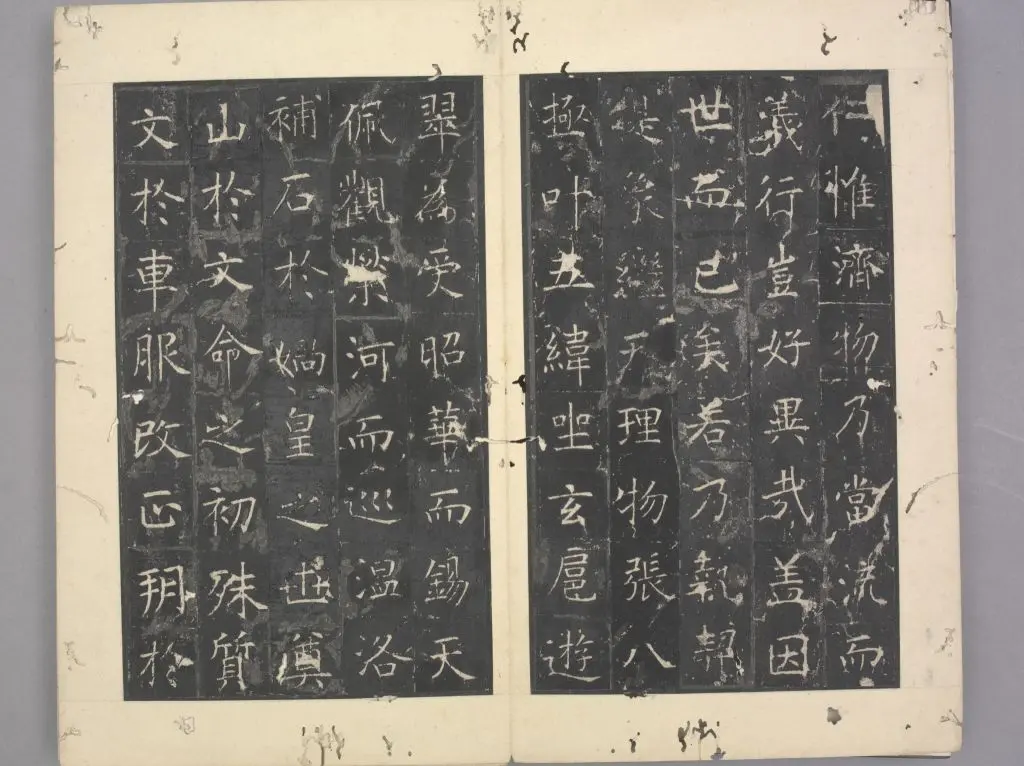 仁惟濟物乃當流而
義行豈好異哉盖因
世而已矣若乃
提象繼天理物張八
極叶五緯坐玄扈遊
翠媯受昭華而錫天
佩觀榮河而巡温洛
補石於媧皇之世奠
山於文命之初殊質
文於車服改正朔於